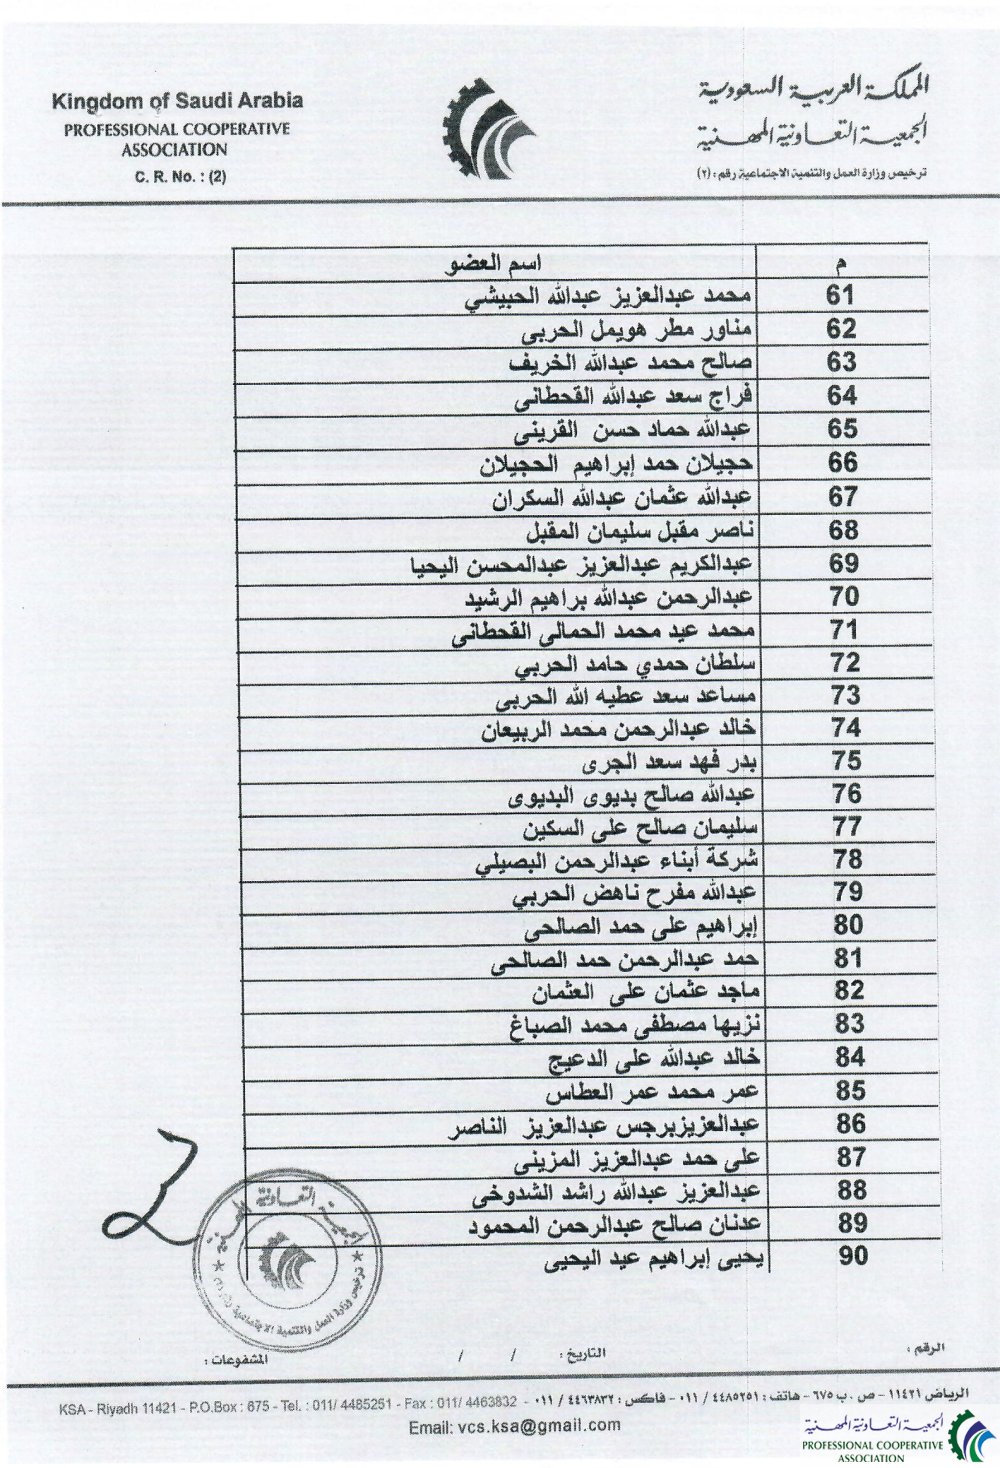 Kingdom of Saudi Arabia
PROFESSIONAL COOPERATIVE
ASSOCIATION
C. R. No. : (2)
المملكة العربية السعودية
الجمعية التعاونية المهنية
ترخيص وزارة العمل والتنمية الاجتماعية رقم : (٢)
م اسم العضو
61 محمد عبدالعزيز عبدالله الحبيشي
62 مناور مطر هويمل الحربى
63 صالح محمد عبدالله الخريف
64 فراج سعد عبدالله القحطانى
65 عبدالله حماد حسن القرينى
66 حجيلان حمد إبراهيم الحجيلان
67 عبدالله عثمان عبدالله السكران
68 ناصر مقبل سليمان المقبل
69 عبدالكريم عبدالعزيز عبدالمحسن اليحيا
70 عبدالرحمن عبدالله براهيم الرشيد
71 محمد عيد محمد الحمالى القحطانى
72 سلطان حمدي حامد الحربي
73 مساعد سعد عطيه الله الحربى
74 خالد عبدالرحمن محمد الربيعان
75 بدر فهد سعد الجرى
76 عبدالله صالح بديوى البديوى
77 سليمان صالح على السكين
78 شركة أبناء عبدالرحمن البصيلي
79 عبدالله مفرح ناهض الحربي
80 إبراهيم على حمد الصالحى
81 حمد عبدالرحمن حمد الصالحى
82 ماجد عثمان على العثمان
83 نزيها مصطفى محمد الصباغ
84 خالد عبدالله على الدعيج
85 عمر محمد عمر العطاس
86 عبدالعزيزبرجس عبدالعزيز الناصر
87 على حمد عبدالعزيز المزينى
88 عبدالعزيز عبدالله راشد الشدوخى
89 عدنان صالح عبدالرحمن المحمود
90 يحيى إبراهيم عيد اليحيى
الجمعية التعاونية المهنية
ترخيص وزارة العمل والتنمية الاجتماعية رقم (٢)
الرقم :
التاريخ : / /
المشفوعات :
الرياض ١١٤٢١ - ص . ب ٦٧٥ - هاتف : ٤٤٨٥٢٥١ / ٠١١ - فاكس : ٤٤٦٣٨٣٢ / ٠١١
KSA - Riyadh 11421 - P.O.Box : 675 - Tel. : 011/ 4485251 - Fax : 011/ 4463832
Email: vcs.ksa@gmail.com
الجمعية التعاونية المهنية
PROFESSIONAL COOPERATIVE
ASSOCIATION